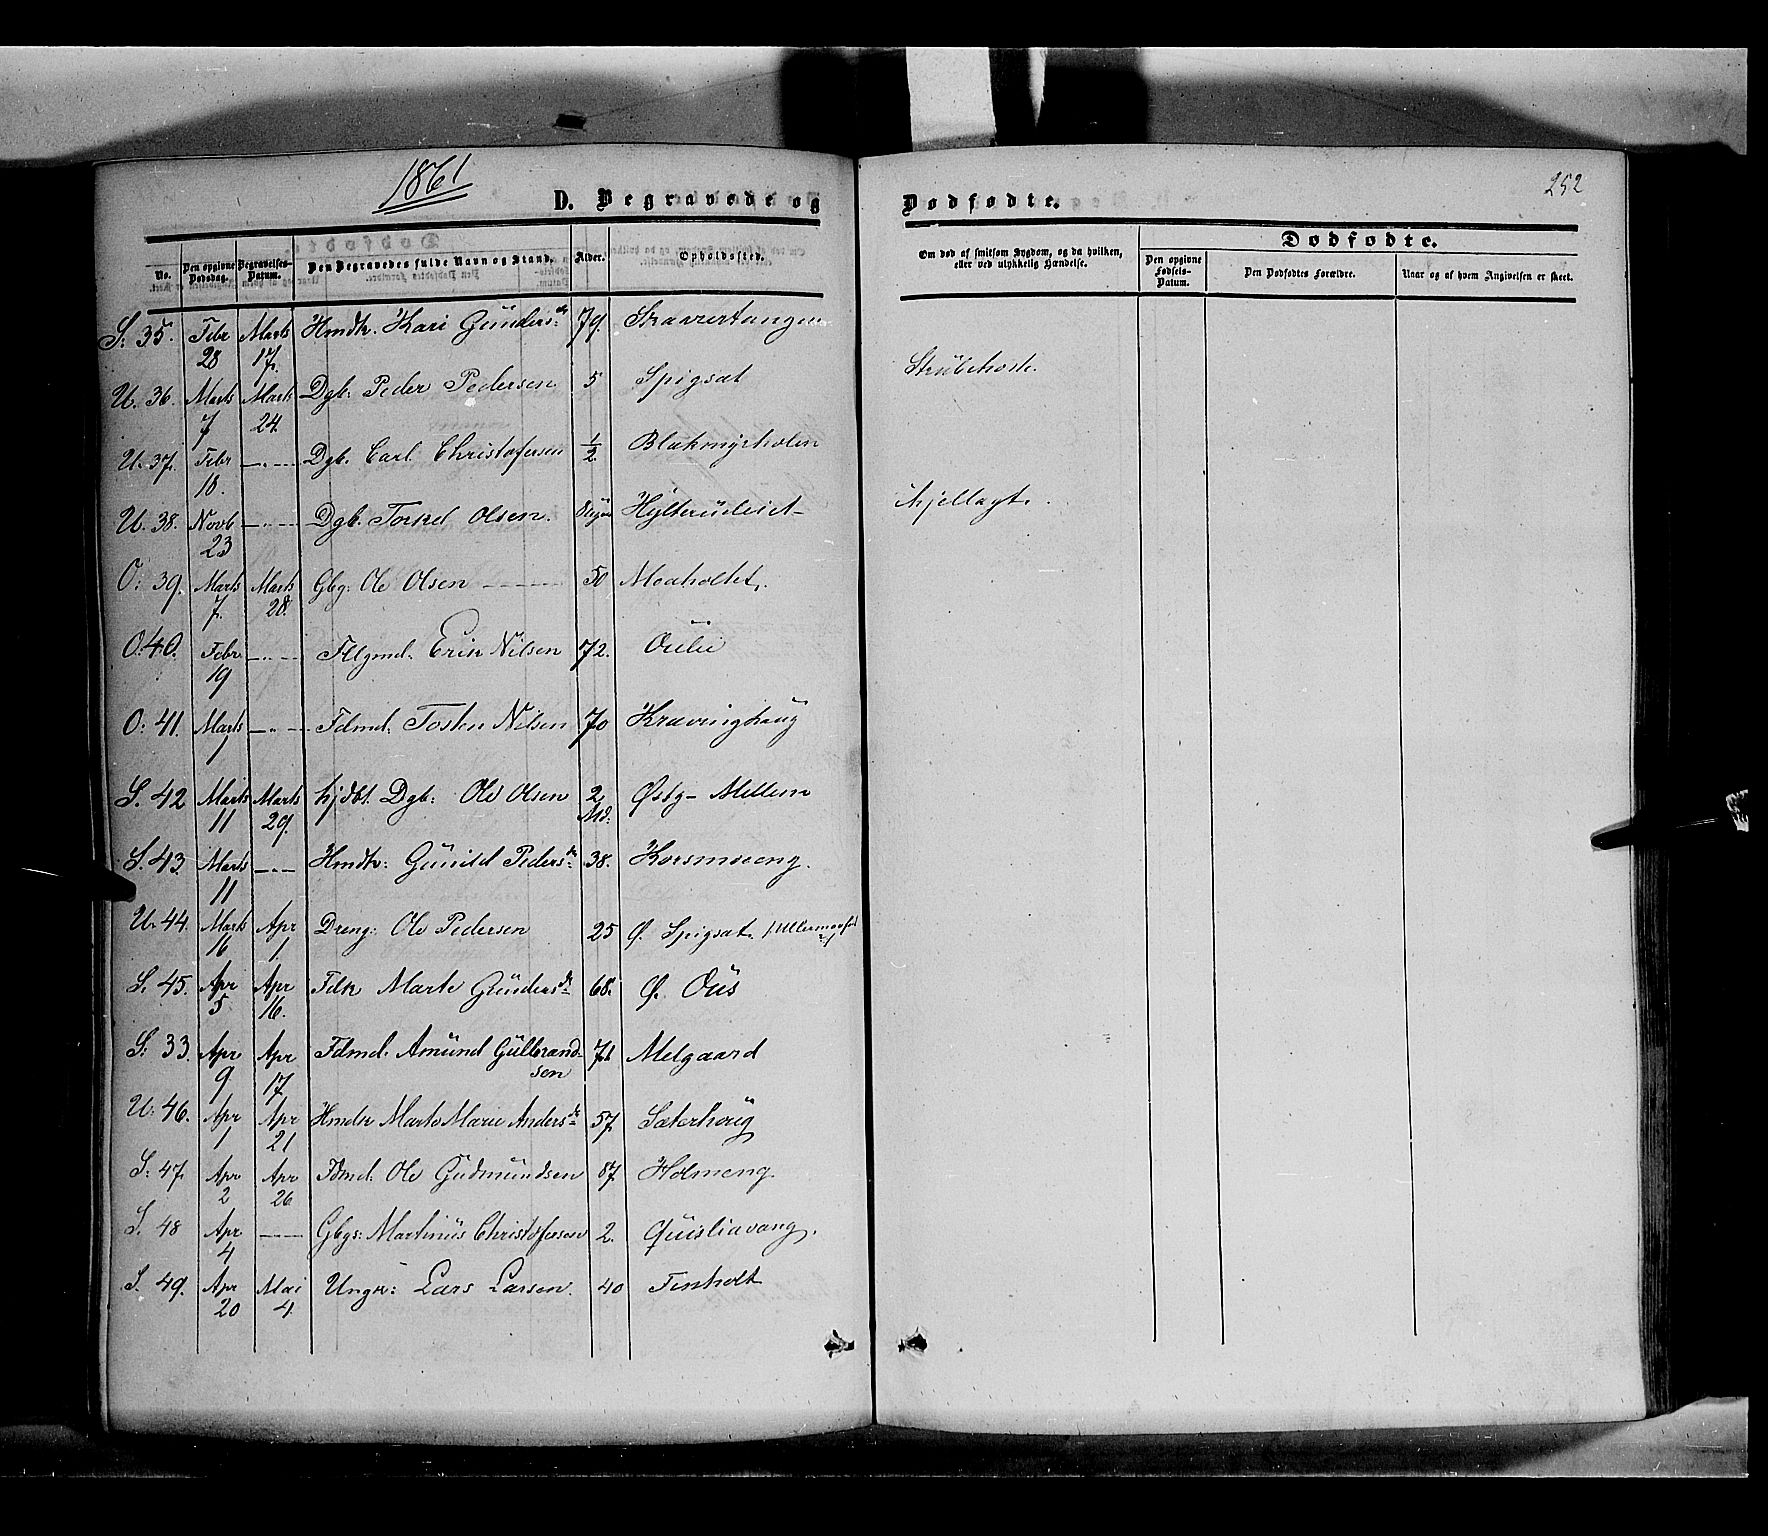 1861
252
D. Begravede og Dødfødte.
No. Den opgivne Dødsdag. Begravelses-Datum. Den Begravedes fulde Navn og Stand. Alder. Opholdssted. Om død af smitsom Sygdom, og da hvilken, eller ved ulykkelig Hændelse.
Dødfødte.
Den opgivne Fødsels-Datum. Den Dødfødtes Forældre. Naar og af hvem Angivelsen er skeet.
S: 35. Febr 28 Marts 17. Hmdk. Kari Gunders dr 79.
U. 36. Marts 7 Marts 24. Dgb: Peder Pedersen 5 Spigsæt Strubehoste.
U. 37. Febr 18. —"— Dgb. Carl Christofersen 1/2 Blakmyrholen
U. 38. Novb 23 —"— Dgb. Torkel Olsen.
O: 39. Marts 7. Marts 28. Gbg: Ole Olsen —— 50 Moaholtet.
O: 40. Febr 19 —"— Flgmd. Erik Nilsen 72. Oulie
O: 41. Marts 1 —"— Fdmd: Tosten Nilsen 70 Kravinghaug
S. 42 Marts 11 Marts 29. hjdbt. Dgb: Ole Olsen 2 Md: Østg- Mellem
S. 43. Marts 11 —"— Hmdk: Gunild Peders dr 38. Korsmoeng.
U. 44. Marts 16 Apr 1. Dreng: Ole Pedersen 25 Ø. Spigsæt.
S. 45. Apr 5. Apr 16. Fdk Marte Gunders dr 68. Ø. Ous
S: 33. Apr 9 Apr 17 Fdmd. Amund Gulbrandsen Melgaard
U: 46. Apr 1 Apr 21 Hmdk Marte Marie Anders dr 57 Sæterhoug
S: 47. Apr 2 Apr 26 Fdmd: Ole Gudmundsen 87. Holmeng.
S. 48 Apr 4 —— Gbgs: Martinus Christofersen 2. Quisliavang.
S. 49. Apr 20 Mai 4. Ungk: Lars Larsen. 40 Tenholt